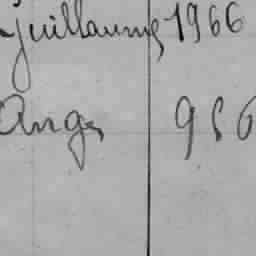 Guillaume 1966
Ange 956